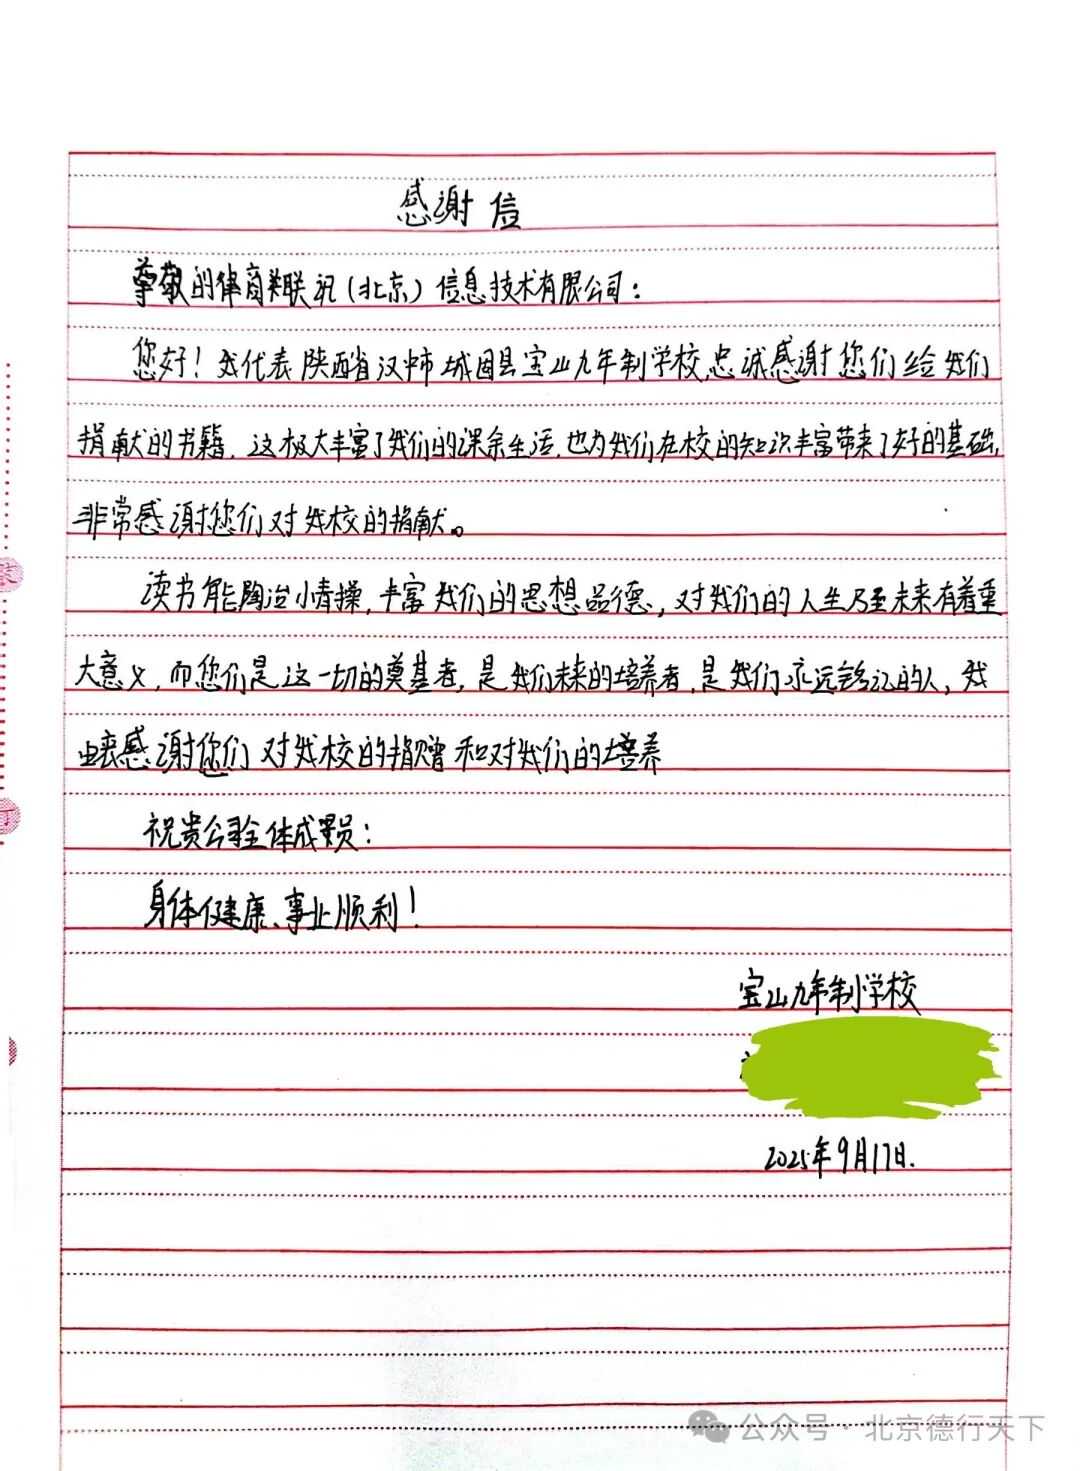 感谢信
尊敬的律商联讯(北京)信息技术有限公司:
您好!我代表陕西省汉中市城固县宝山九年制学校忠诚感谢您们给我们
捐献的书籍,这极大丰富了我们的课余生活,也为我们在校的知识丰富带来了好的基础,
非常感谢您们对我校的捐献。
读书能陶冶情操,丰富我们的思想品德,对我们的人生乃至未来有着重
大意义,而您们是这一切的奠基者,是我们未来的培养者,是我们永远铭记的人,我
由衷感谢您们对我校的捐赠和对我们的培养
祝贵公司全体成员:
身体健康、事业顺利!
宝山九年制学校
2025年9月17日.
公众号·北京德行天下